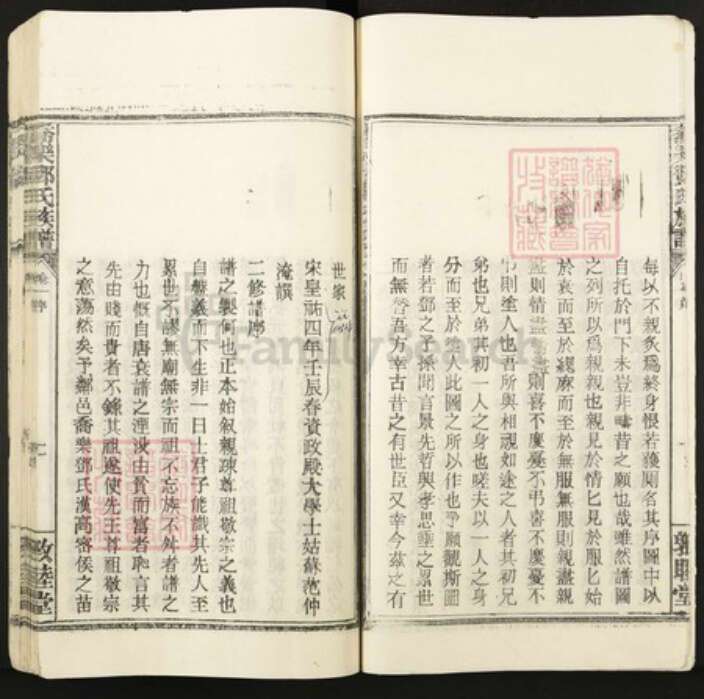 每以不親炙為終身恨若獲厠名其序圖中以
自托於門下未豈非疇昔之願也哉雖然譜圖
之列所以為親親也親見於情匕見於服匕始
於衰而至於緦麻而至於無服無服則親盡親
盡則情盡情盡則喜不慶憂不弔喜不慶憂不
弔則塗人也吾所與相視如途之人者其初兄
弟也兄弟其初一人之身也嗟夫以一人之身
分而至於塗人此圖之所以作也予願觀斯圖
者若鄧之子孫聞言景先哲興孝思垂之累世
而無替吾方幸古昔之有世臣又幸今茲之有
世家
宋皇祐四年壬辰春資政殿大學士姑蘇范仲
淹譔
二修譜序
譜之製何也正本始叙親疎尊祖敬宗之義也
自禮義而下生非一日士君子能識其先人至
累世不謬無廟無宗而祖不忘族不舛者譜之
力也慨自唐衰譜之湮沒由貧而富者恥言其
先由賤而貴者不錄其祖遂使先王尊祖敬宗
之意蕩然矣予鄰邑喬樂鄧氏漢高密侯之苗
喬樂鄧氏族譜
序
敦睦堂
FamilySearch